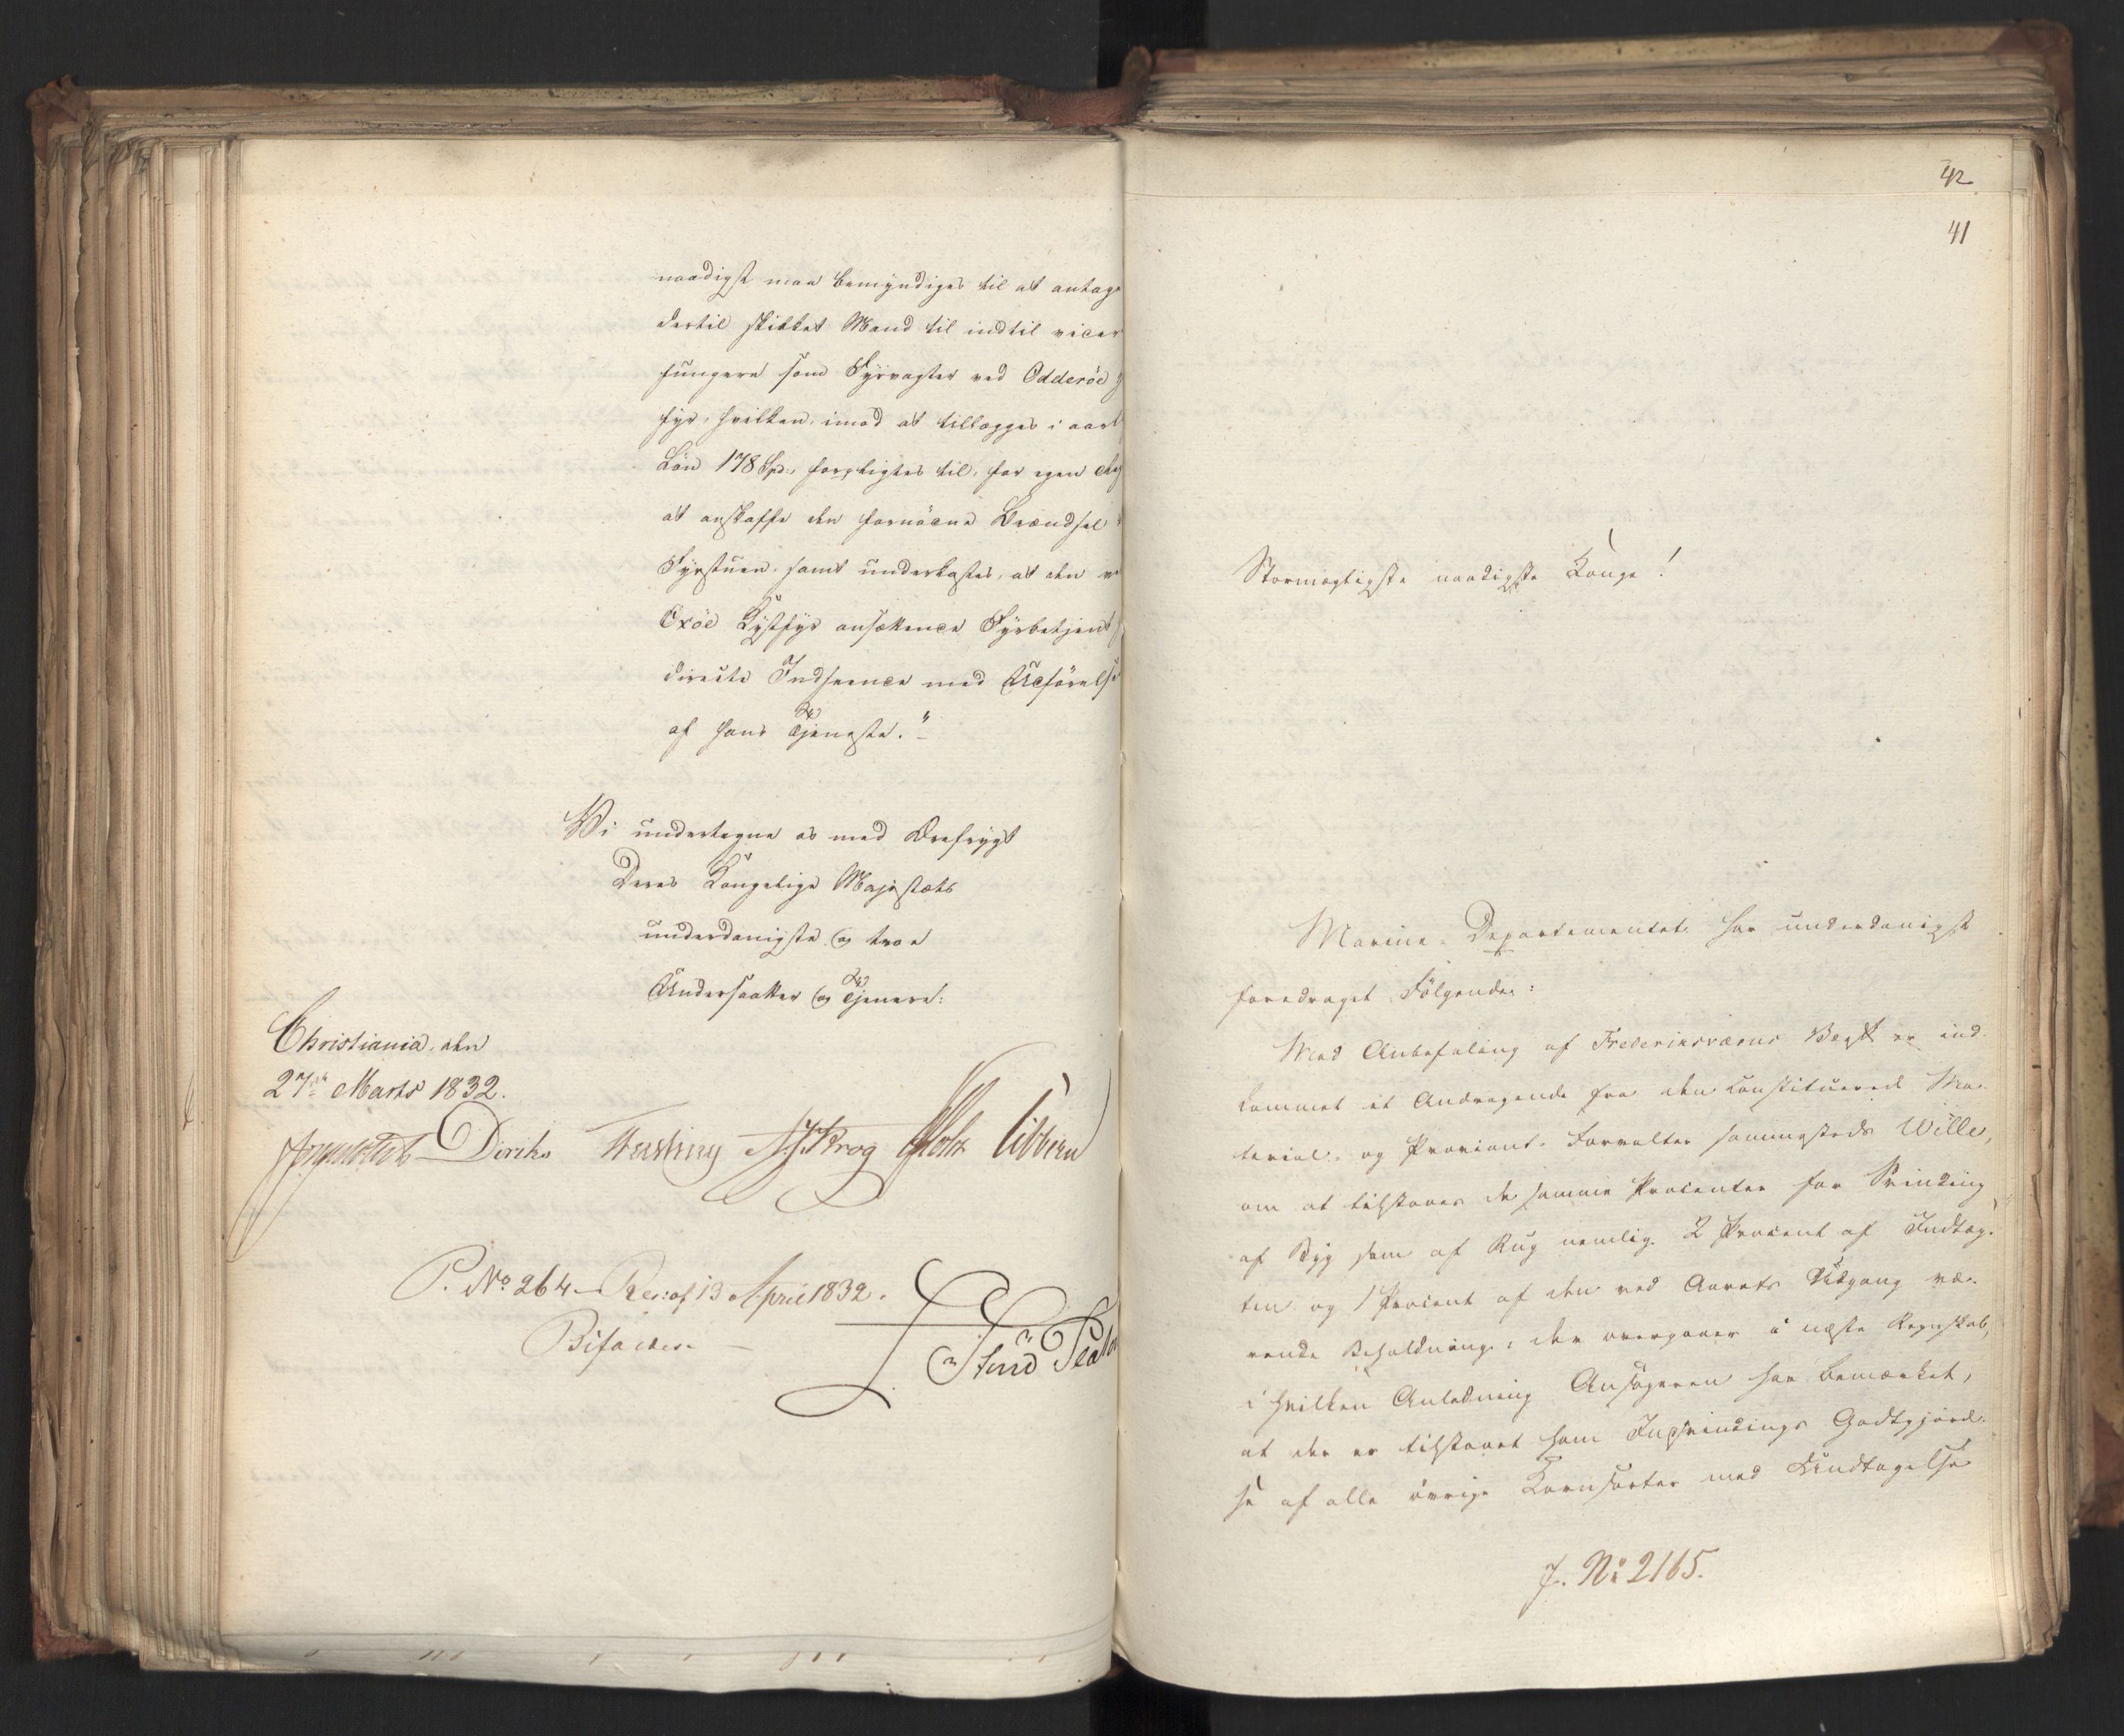 naadigst maa bemyndiges til at antage
dertil skikket Mand til indtil videre
fungere som Fyrvogter ved Odderöe
fyr, hvilken, imod at tillægges i aarl
Lön 178 Spd, forpligtes til, for egen
at anskaffe den fornödne Brændsel
Fyrstuen, samt underkastes, at den ve
Oxöe Kystfyr ansættende Fyrbetjent
directe Indseende med Udförelse
af hans Tjeneste."
Vi undertegne os med Ærefrygt
Deres Kongelige Majestæts
underdanigste og troe
Undersaatter og Tjenere:
Christiania, den
27de Marts 1832.
Diriks N. J. Krog Holst Sibbern
P. No 264. Res: af 13 April 1832.
Bifaldes.
42
41
Stormægtigste naadigste Konge!
Marine-Departementet har underdanigst
foredraget Fölgende:
Med Anbefaling af Frederiksværns Værft er ind-
kommet et Andragende fra den constituerede Ma-
terial- og Proviant-Forvalter sammesteds Wille,
om at tilstaaes de samme Procenter for Svinding
af Byg som af Rug nemlig 2 Procent af Indtæg-
ten og 1 Procent af den ved Aarets Udgang væ-
rende Beholdning, der overgaaer i næste Regnskab,
i hvilken Anledning Ansögeren har bemærket,
at der er tilstaaet ham Indsvindings Godtgjörel-
se af alle övrige Kornsorter med Undtagelse
J. No 2165.